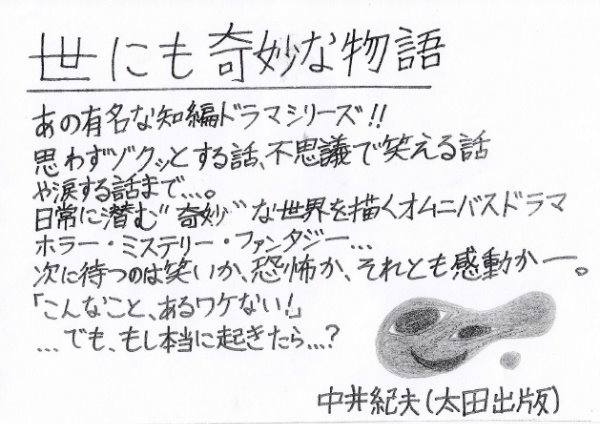 世にも奇妙な物語
あの有名な知編ドラマシリーズ!!
思わずゾクッとする話、不思議で笑える話
や涙する話まで…。
日常に潜む"奇妙"な世界を描くオムニバスドラマ
ホラー・ミステリー・ファンタジー…
次に待つのは笑いか、恐怖か、それとも感動かー。
「こんなこと、あるワケない!」
…でも、もし本当に起きたら…?
中井紀夫(太田出版)